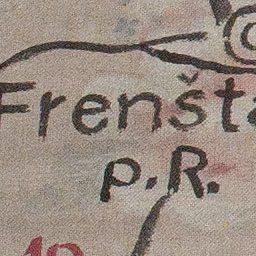 Frenšta
p.R.
19